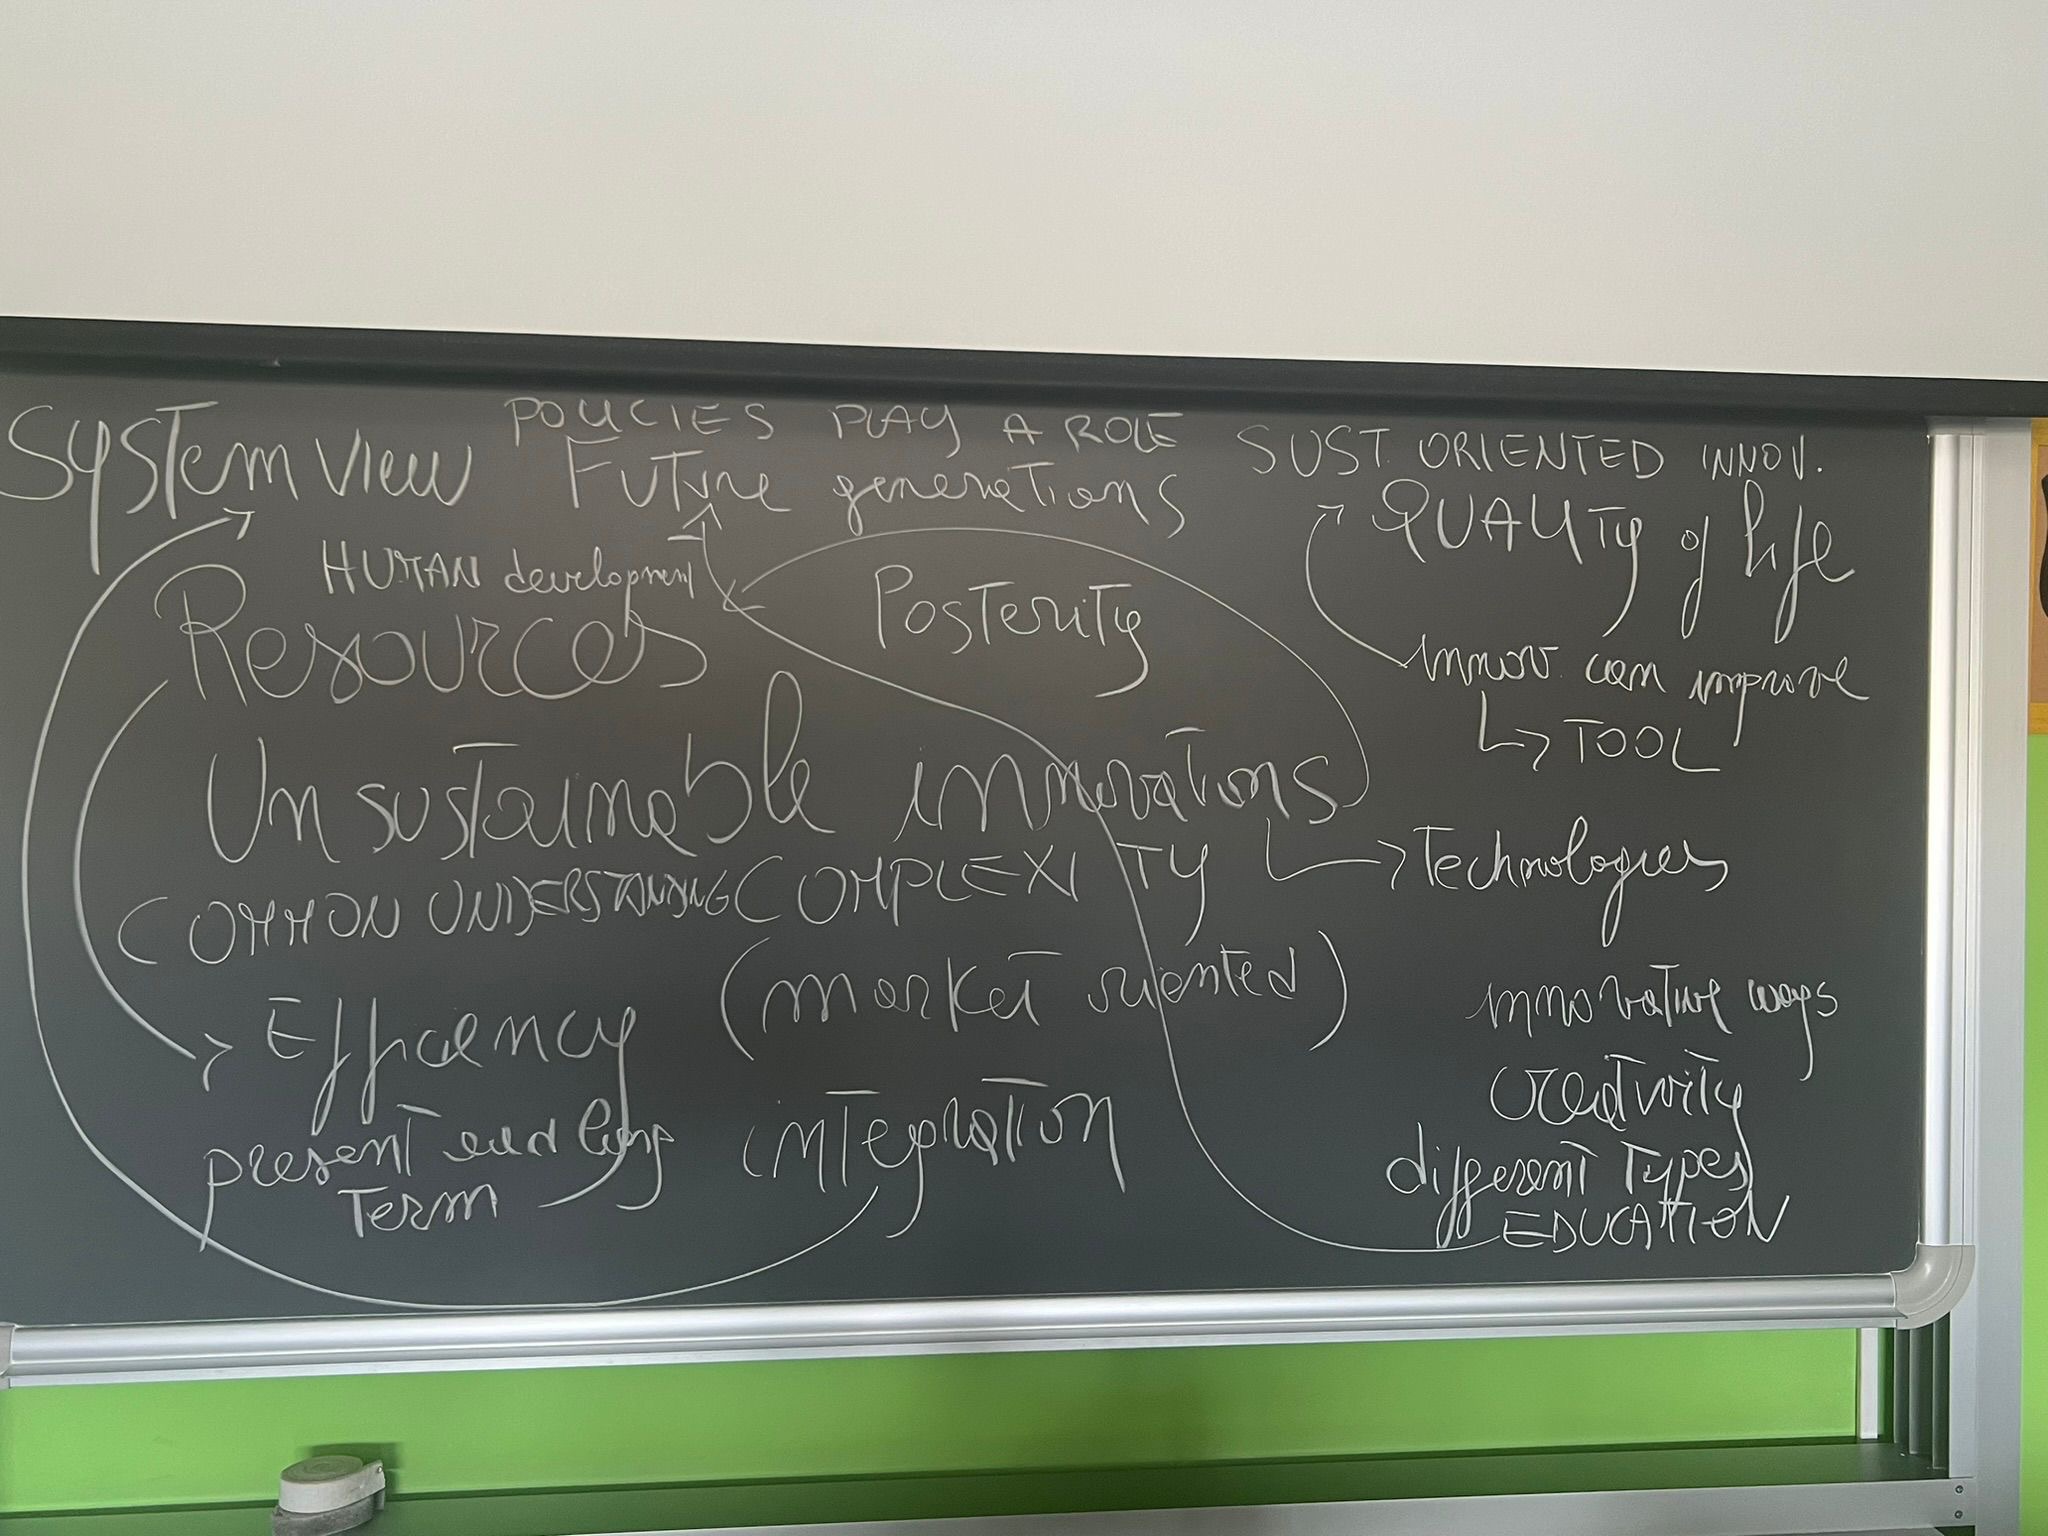 POLICIES PLAY A ROLE
System view
Future generations
SUST. ORIENTED INNOV.
QUALITY of life
HUMAN development
Posterity
Resources
innov. can improve
TOOL
Unsustainable innovations
Technologies
COMMON UNDERSTANDING COMPLEXITY
(market oriented)
Efficiency
innovative ways
creativity
present and long
term
integration
different types
EDUCATION